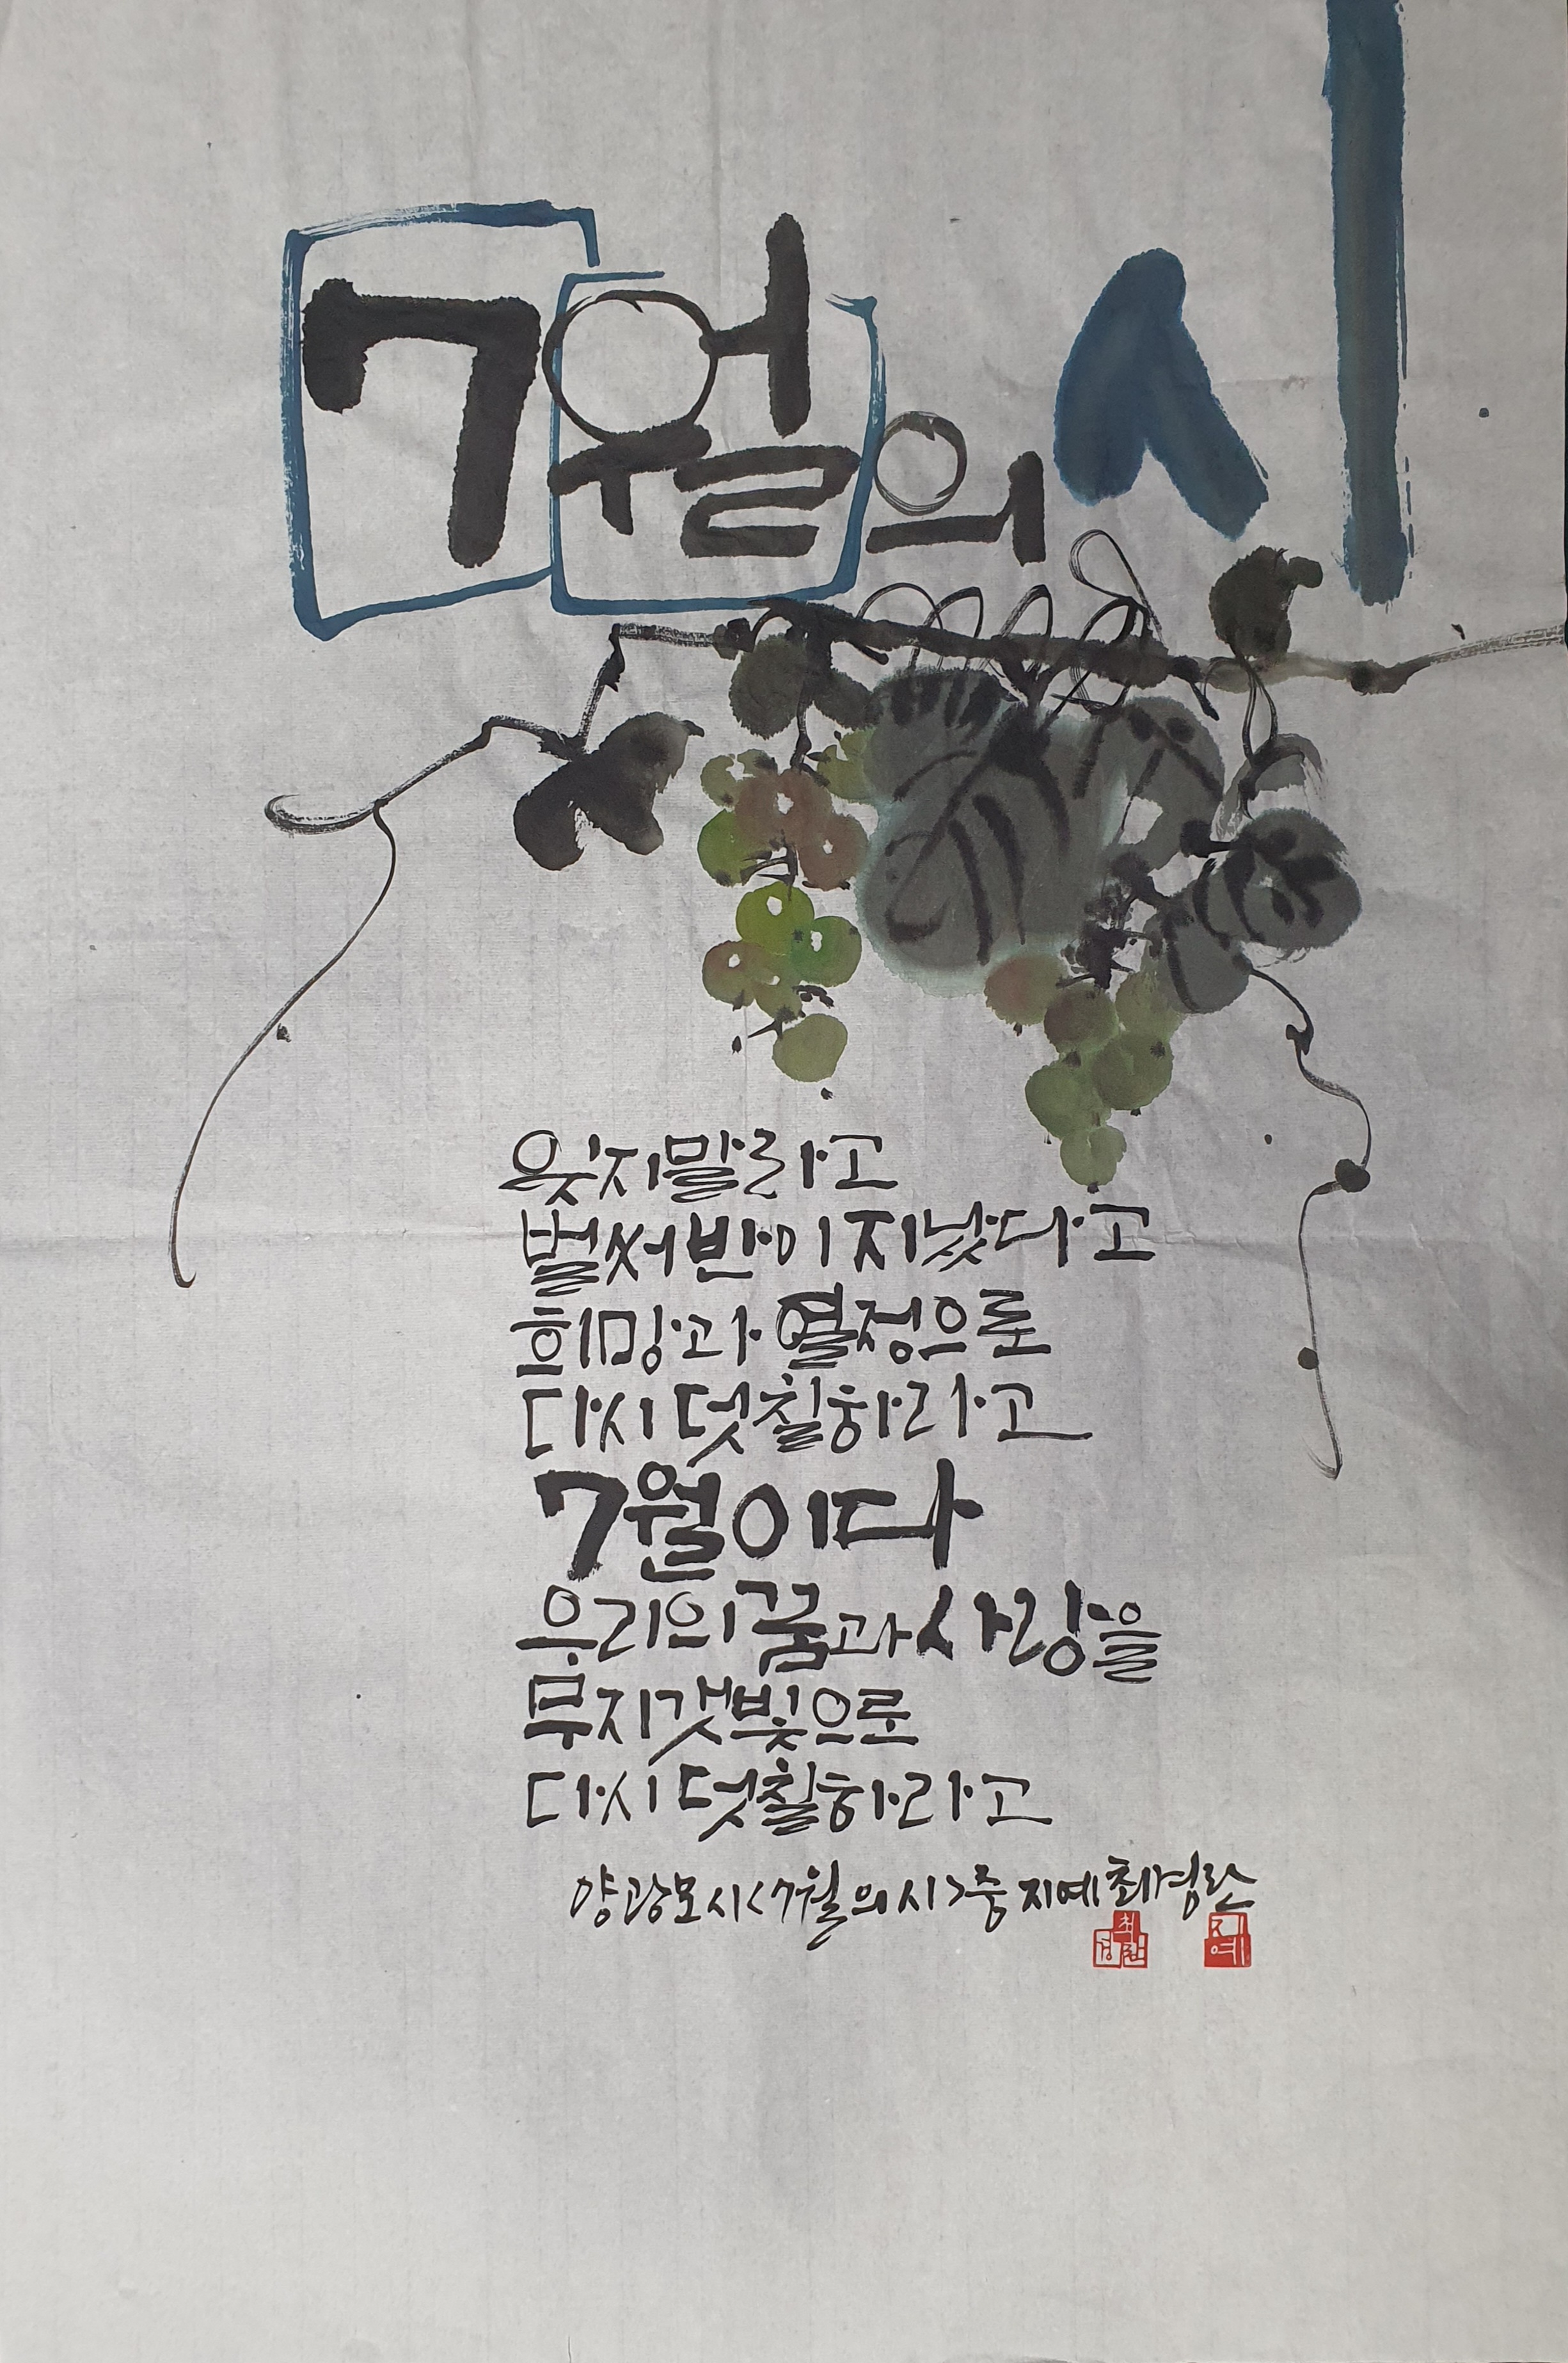 7월의 시
잊지말라고
벌써 반이 지났다고
희망과 열정으로
다시 덧칠하라고
7월이다
우리의 꿈과 사랑을
무지갯빛으로
다시 덧칠하라고
양광모 시<7월의 시>중 지예 최영란
지예